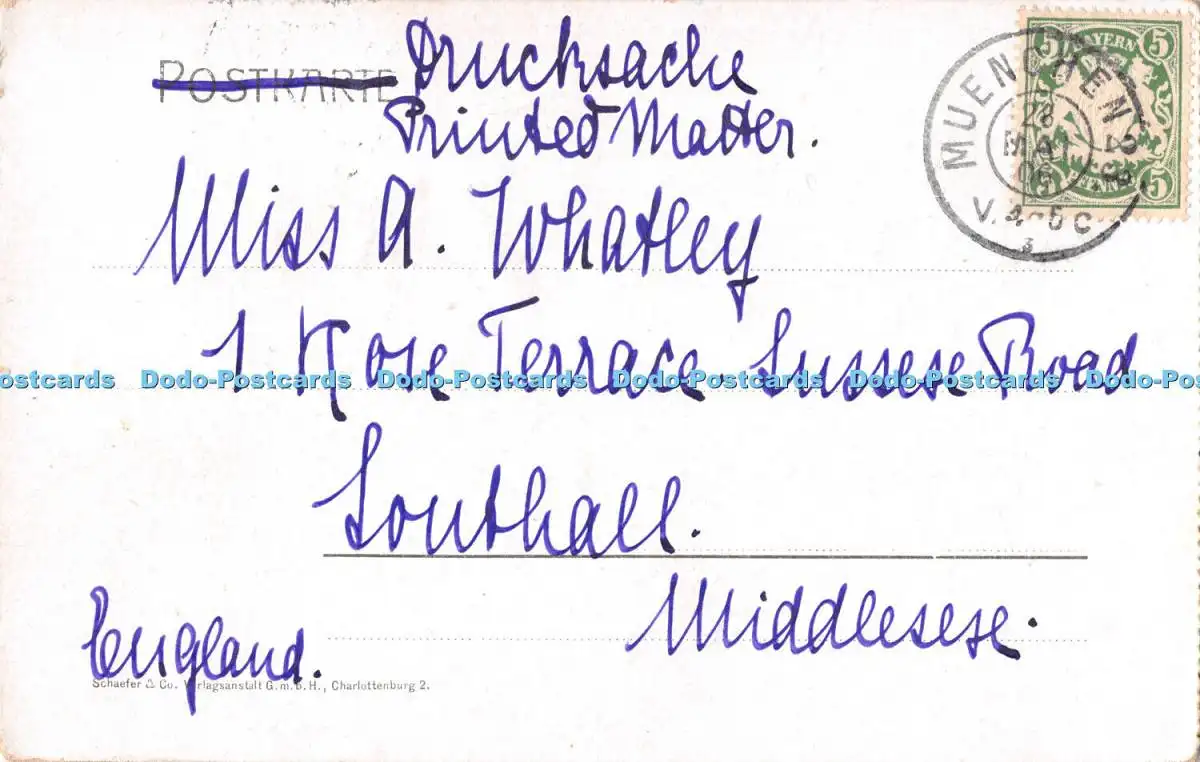 POSTKARTE Drucksache
Printed Matter.
5 BAYERN 5
MUENCHEN 28
28
MAI
V. 4-5 C
5 PFENNIG 5
Miss A. Whatley
1 Rose Terrace Sussex Road
Postcards Dodo-Postcards Dodo-Postcards Dodo-Postcards Dodo-Postcards Dodo-Pos
Southall.
Middlesex.
England.
Schaefer & Co. Verlagsanstalt G.m.b.H., Charlottenburg 2.